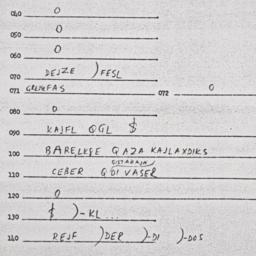 040 O
050 O
060 O
070 DEJZE )FESL
071 GRLEKFAS 072 O
080 O
090 KAJFL QGL $
100 BARELKEE QAZA KAJLAXDIKS
110 CEBER QDI VASER
120 O
130 $ )-KL...
140 REJF )DER )-DI )-DOS